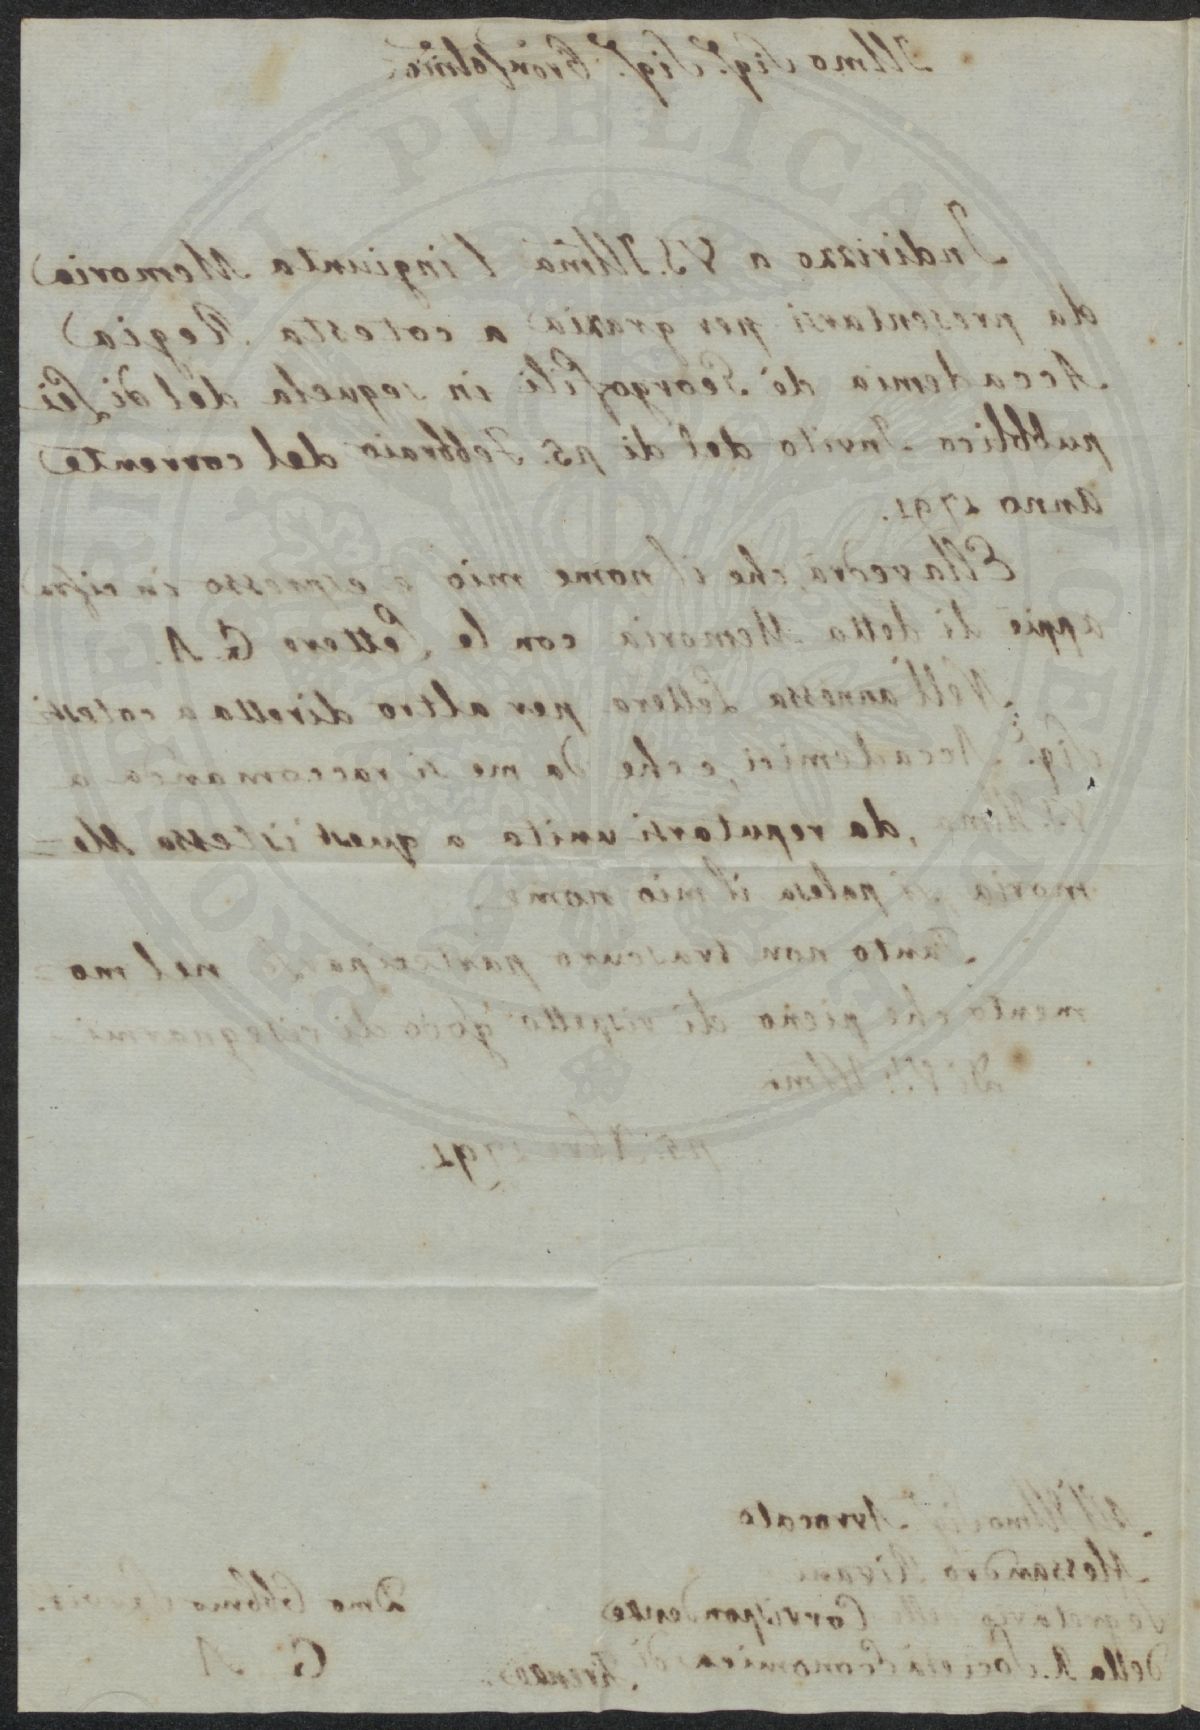 Illmo Sigr. Sigr. Pron Colmo
Indirizzo a VS. Illma l'ingiunta Memoria
da presentarsi per grazia a cotesta Regia
Accademia de Georgofili in sequela del di Lei
pubblico Invito del di 15. Febbraio del corrente
anno 1791.
Ella vedrà, che il nome mio è espresso in cifra
appiè di detta Memoria con le Lettere G. A.
Nell'annessa Lettera per altro diretta a cotesti
Sigri. Accademici, e che da me si raccomanda a
VS. Illma, da reputarsi unita a quest'istessa Me=
moria si palesa il mio nome
Tanto non trascuro parteciparle nel mo=
mento che pieno di rispetto godo di rasegnarmi
Di VS. Illma
15. 1791.
All'Illmo Sigr. Avvocato
Alessandro Rivani
Segretario delle Corrispondenze
Della R. Società Economica di Firenze
Dmo Obbmo Servite.
G. A.
PUBLICAE